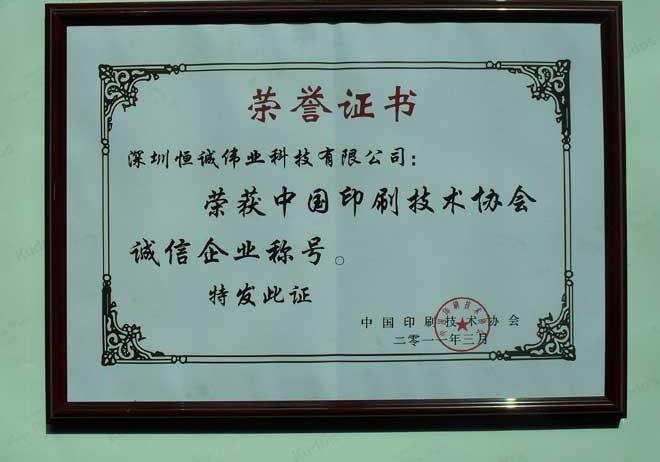 荣誉证书
深圳恒诚伟业科技有限公司：
荣获中国印刷技术协会
诚信企业称号。
特发此证
中国印刷技术协会
二零一一年三月
Kudos